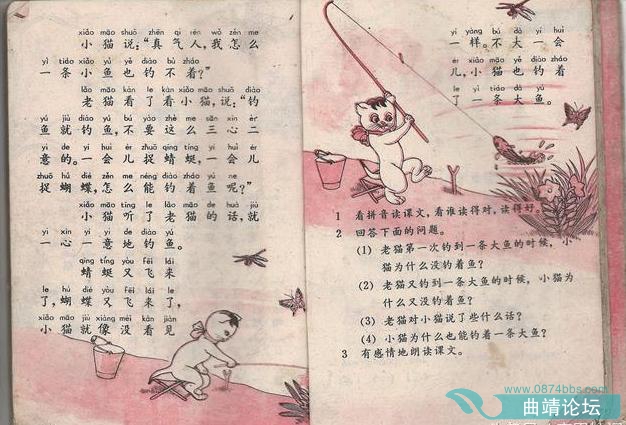 xiǎo māo shuō zhēn qì rén wǒ zěn me
小猫说：“真气人，我怎么
yì tiáo xiǎo yú yě diào bù zháo
一条小鱼也钓不着？”
lǎo māo kàn le kàn xiǎo māo shuō diào
老猫看了看小猫，说：“钓
yú jiù diào yú bú yào zhè me sān xīn èr
鱼就钓鱼，不要这么三心二
yì de yí huì ér zhuō qīng tíng yí huì ér
意的。一会儿捉蜻蜓，一会儿
zhuō hú dié zěn me néng diào zháo yú ne
捉蝴蝶，怎么能钓着鱼呢？”
xiǎo māo tīng le lǎo māo de huà jiù
小猫听了老猫的话，就
yì xīn yí yì de diào yú
一心一意地钓鱼。
qīng tíng yòu fēi lái
蜻蜓又飞来
le hú dié yòu fēi lái le
了，蝴蝶又飞来了，
xiǎo māo jiù xiàng méi kàn jiàn
小猫就像没看见
yí yàng bú dà yí huì
一样。不大一会
ér xiǎo māo yě diào zháo
儿，小猫也钓着
le yì tiáo dà yú
了一条大鱼。
1 看拼音读课文，看谁读得对，读得好。
2 回答下面的问题。
(1) 老猫第一次钓到一条大鱼的时候，小
猫为什么没钓着鱼？
(2) 老猫又钓到一条大鱼的时候，小猫为
什么又没钓着鱼？
(3) 老猫对小猫说了些什么话？
(4) 小猫为什么也能钓着一条大鱼？
3 有感情地朗读课文。
www.0874bbs.com
曲靖论坛